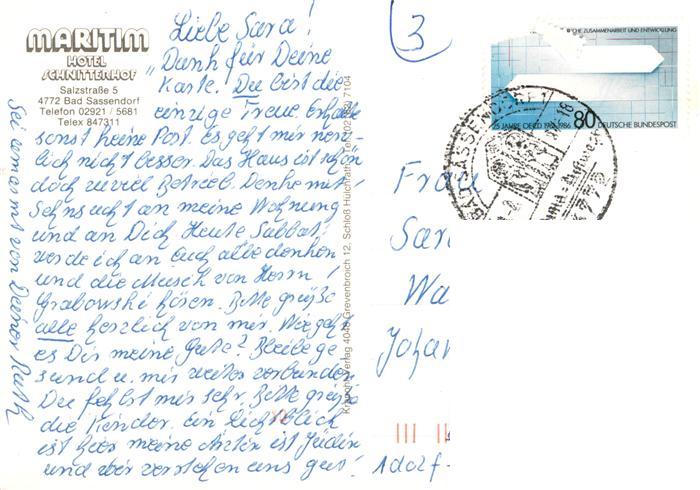 MARITIM
HOTEL
SCHNITTERHOF
Salzstraße 5
4772 Bad Sassendorf
Telefon 02921 / 5681
Telex 847311
Liebe Sara!
Dank für Deine
Karte. Du bist die
einzige Treue. Erhalte
sonst keine Post. Es geht mir
nicht besser. Das Haus ist schön
doch zuviel Betrieb. Denke mit
Sehnsucht an meine Wohnung
und an Dich. Heute Sabbat.
werde ich an Euch alle denken
und die Musik von Herrn
Grabowski hören. Bitte grüße
alle herzlich von mir. Wie geht
es Dir meine Gute? Bleibe ge
sund u. mir weiter verbunden
Du fehlst mir sehr. Bitte grüße
die Kinder. Ein Lichtblick
ist hier meine Ärztin ist Jüdin
und wir verstehen uns gut!
Sei umarmt von Deiner Ruth
Krapohl-Verlag 4048 Grevenbroich 12, Schloß Hülchrath, Tel. 7104
3
ZUSAMMENARBEIT UND ENTWICKLUNG
25 JAHRE OECD 1961-1986
80
DEUTSCHE BUNDESPOST
BAD SASSENDORF 1
4772
Frau
Sar
Wa
Johan
Adolf-